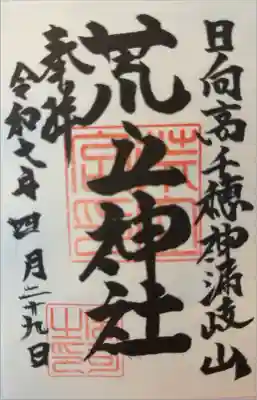 日向高千穂神漏岐山
荒立神社
奉拝
令和七年四月二十九日